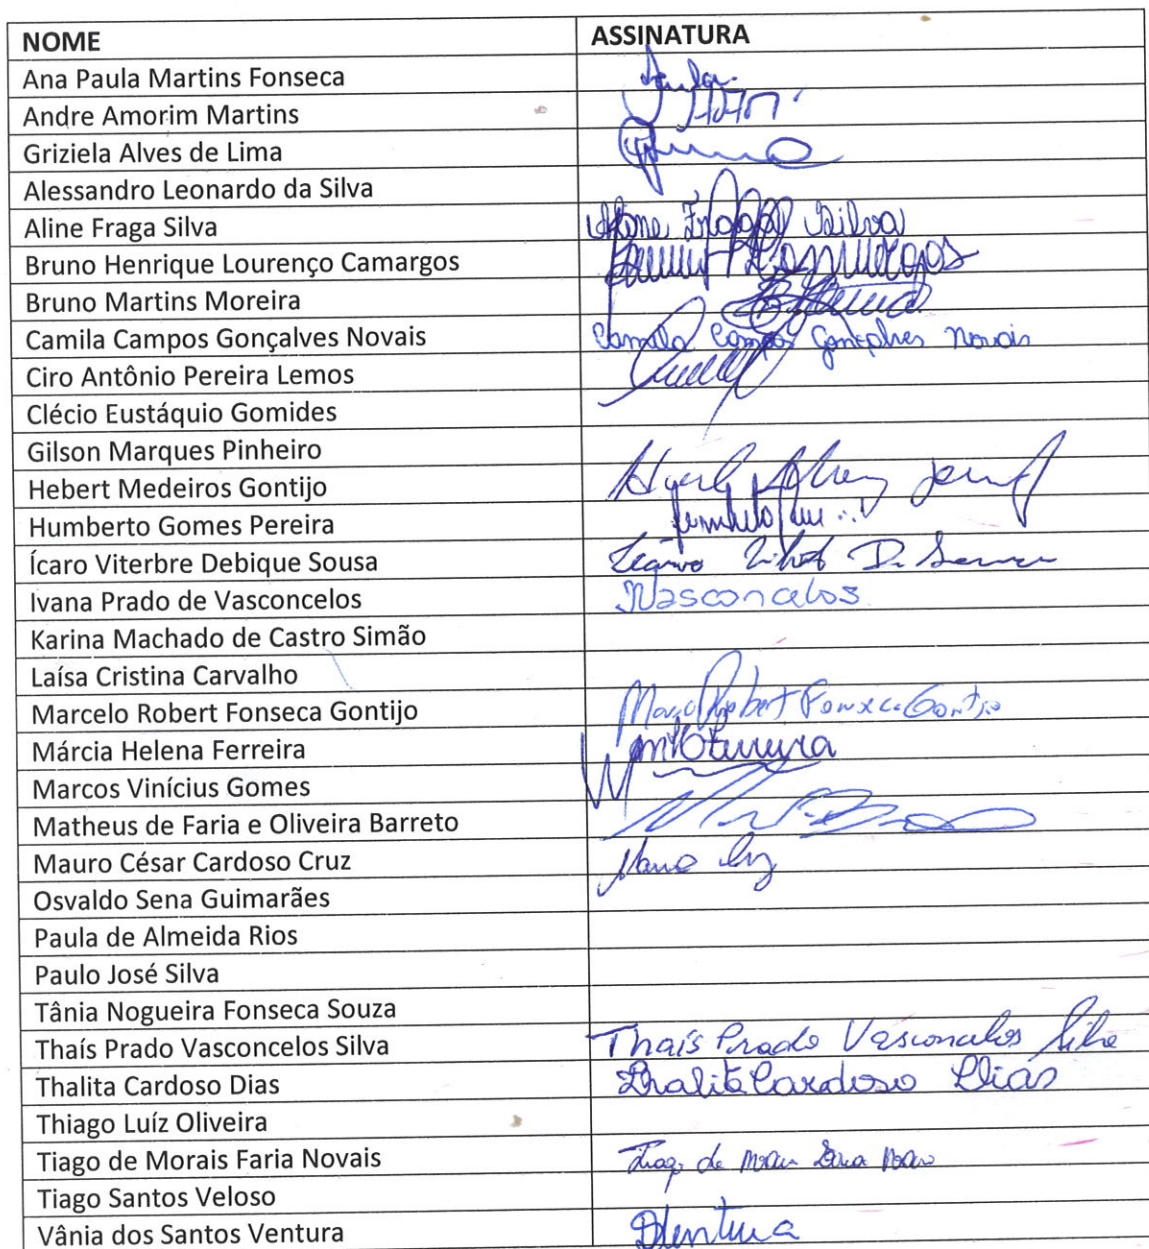 NOME ASSINATURA
Ana Paula Martins Fonseca
Andre Amorim Martins
Griziela Alves de Lima
Alessandro Leonardo da Silva
Aline Fraga Silva Aline Fraga Silva
Bruno Henrique Lourenço Camargos
Bruno Martins Moreira
Camila Campos Gonçalves Novais Camila Campos Gonçalves Novais
Ciro Antônio Pereira Lemos
Clécio Eustáquio Gomides
Gilson Marques Pinheiro
Hebert Medeiros Gontijo
Humberto Gomes Pereira
Ícaro Viterbre Debique Sousa
Ivana Prado de Vasconcelos IVasconcelos
Karina Machado de Castro Simão
Laísa Cristina Carvalho
Marcelo Robert Fonseca Gontijo Marcelo Robert Fonseca Gontijo
Márcia Helena Ferreira
Marcos Vinícius Gomes
Matheus de Faria e Oliveira Barreto
Mauro César Cardoso Cruz Mauro Cruz
Osvaldo Sena Guimarães
Paula de Almeida Rios
Paulo José Silva
Tânia Nogueira Fonseca Souza
Thaís Prado Vasconcelos Silva Thaís Prado Vasconcelos Silva
Thalita Cardoso Dias Thalita Cardoso Dias
Thiago Luíz Oliveira
Tiago de Morais Faria Novais Tiago de Morais Faria Novais
Tiago Santos Veloso
Vânia dos Santos Ventura